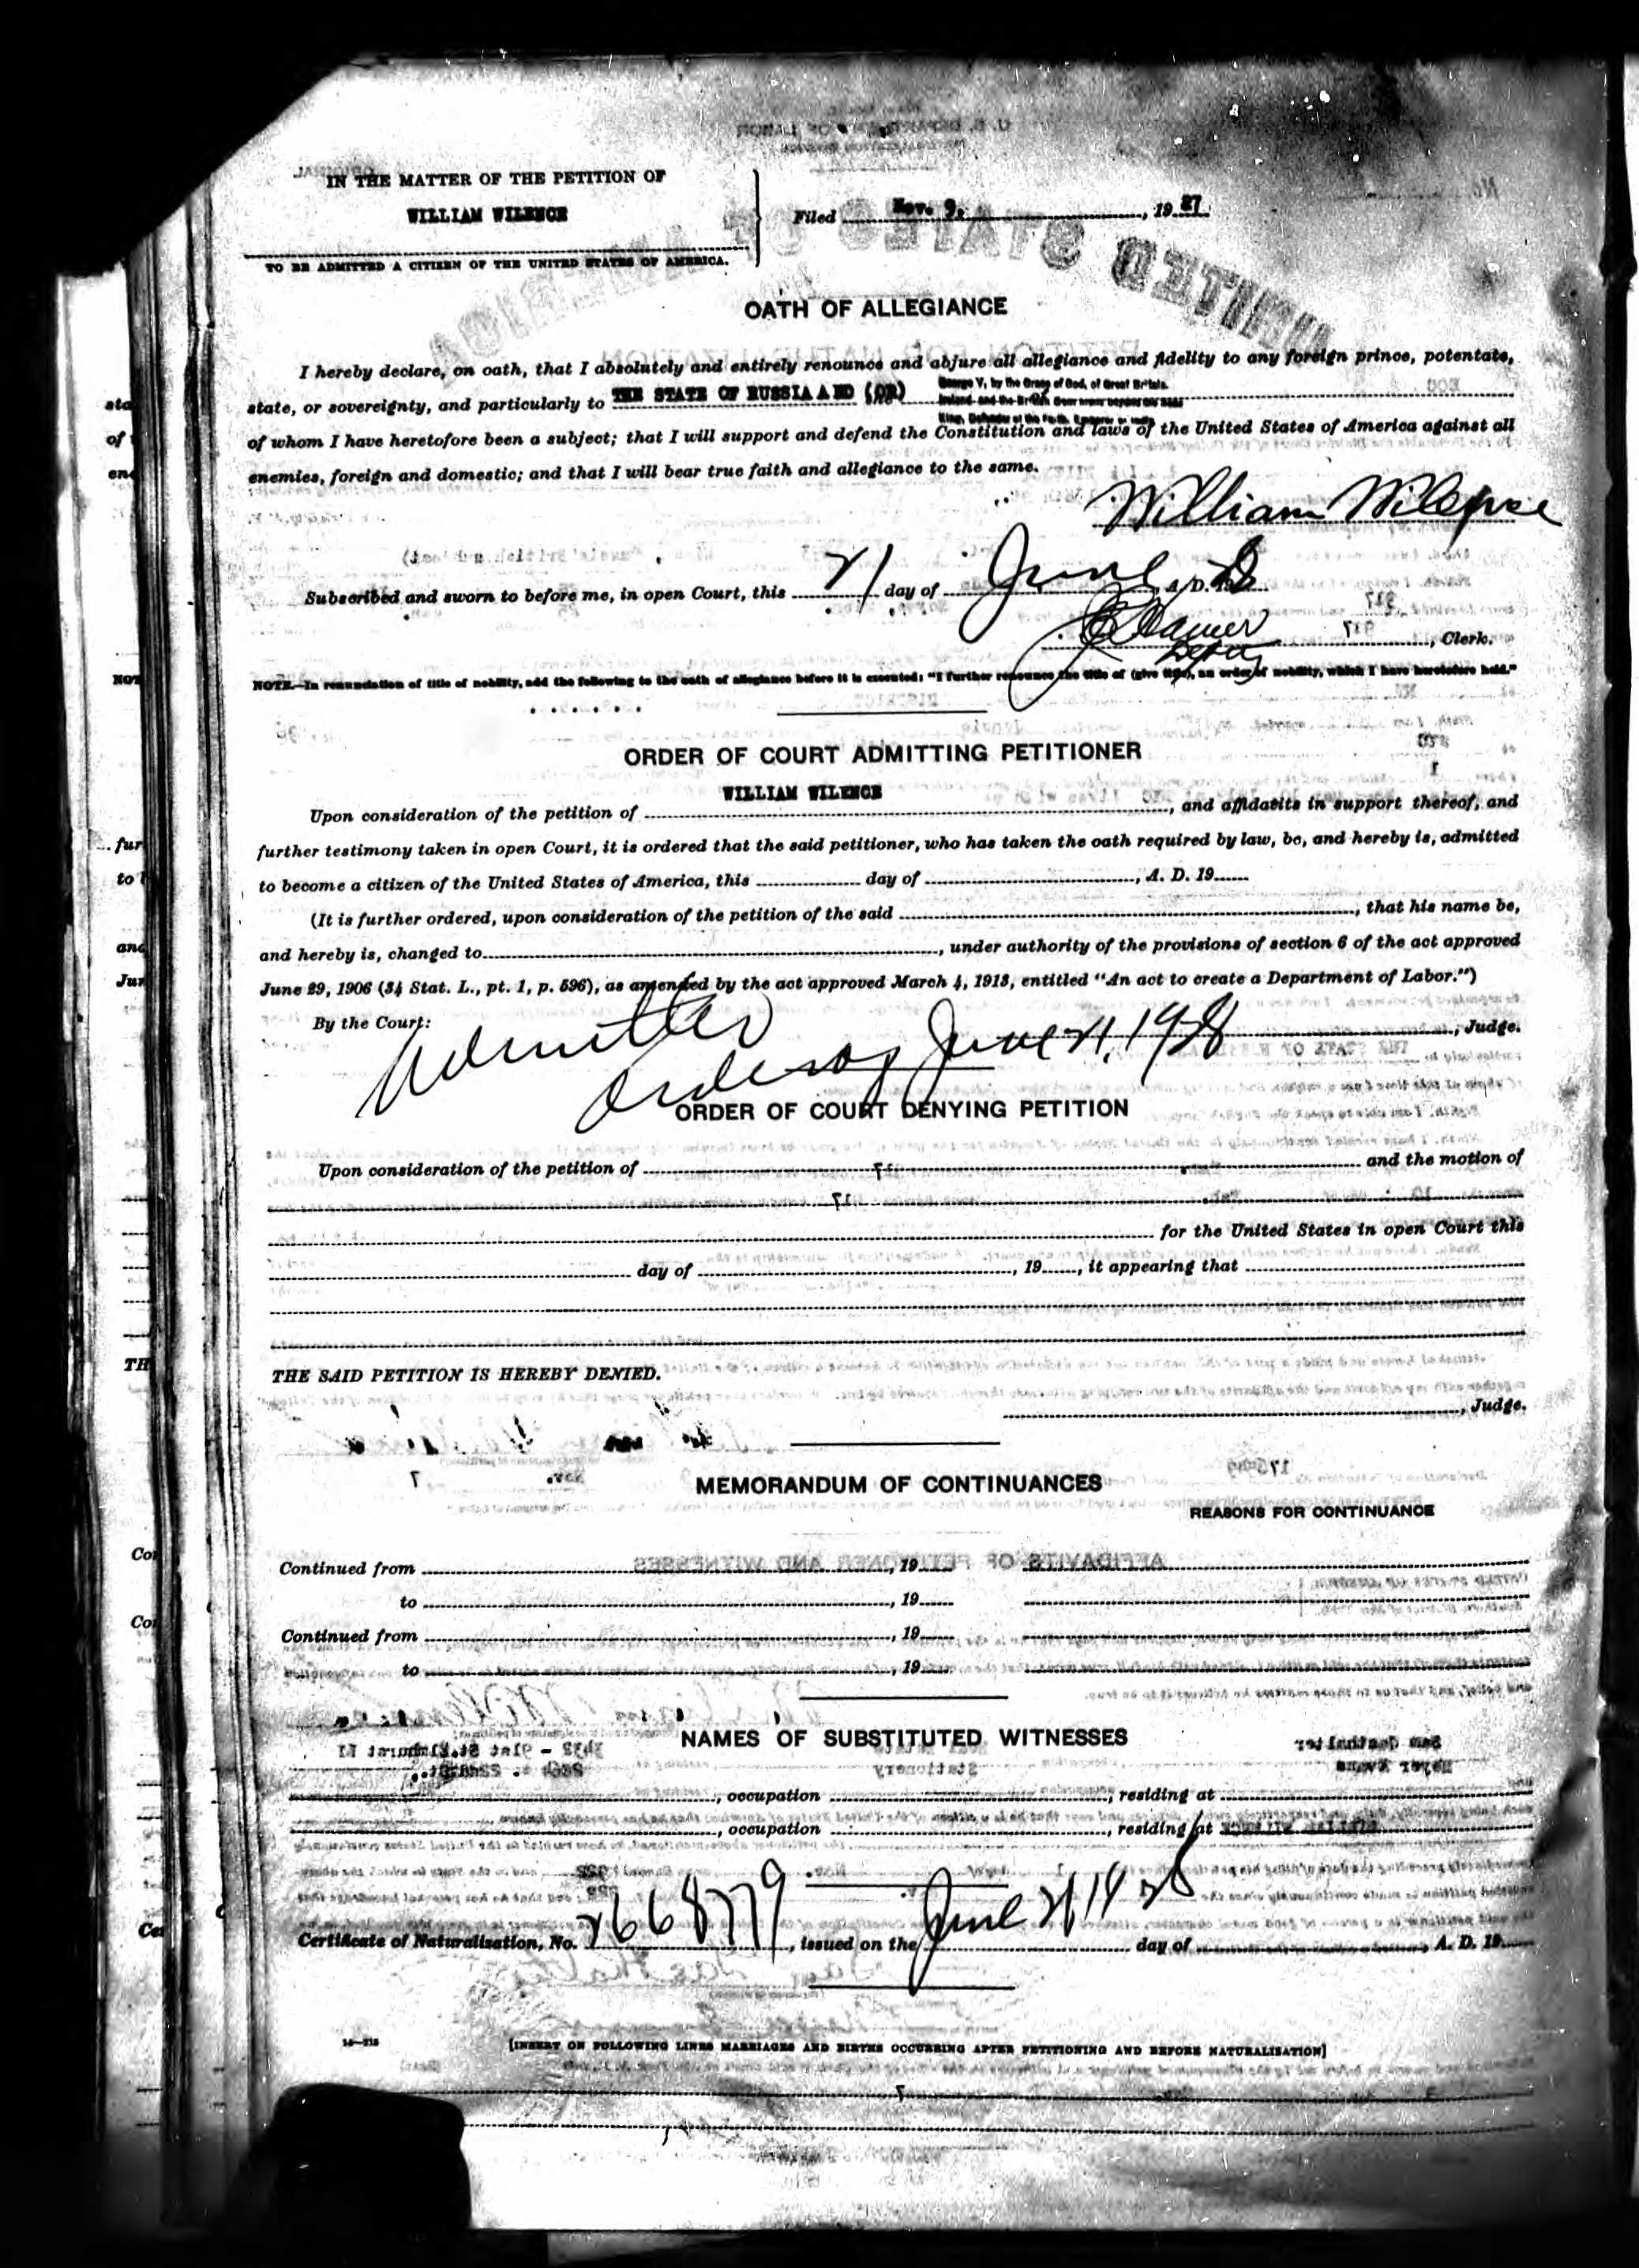 IN THE MATTER OF THE PETITION OF
WILLIAM WILENCE
Filed Nov. 9, 1927
TO BE ADMITTED A CITIZEN OF THE UNITED STATES OF AMERICA.
OATH OF ALLEGIANCE
I hereby declare, on oath, that I absolutely and entirely renounce and abjure all allegiance and fidelity to any foreign prince, potentate,
state, or sovereignty, and particularly to THE STATE OF RUSSIA AND (OR) George V, by the Grace of God, of Great Britain,
of whom I have heretofore been a subject; that I will support and defend the Constitution and laws of the United States of America against all
enemies, foreign and domestic; and that I will bear true faith and allegiance to the same.
William Wilence
Subscribed and sworn to before me, in open Court, this 21 day of June, A. D. 28
, Clerk.
Deputy
NOTE.—In renunciation of title of nobility, add the following to the oath of allegiance before it is executed: "I further renounce the title of (give title), an order of nobility, which I have heretofore held."
ORDER OF COURT ADMITTING PETITIONER
WILLIAM WILENCE
Upon consideration of the petition of , and affidavits in support thereof, and
further testimony taken in open Court, it is ordered that the said petitioner, who has taken the oath required by law, be, and hereby is, admitted
to become a citizen of the United States of America, this day of , A. D. 19
(It is further ordered, upon consideration of the petition of the said , that his name be,
and hereby is, changed to , under authority of the provisions of section 6 of the act approved
June 29, 1906 (34 Stat. L., pt. 1, p. 596), as amended by the act approved March 4, 1913, entitled "An act to create a Department of Labor.")
By the Court: , Judge.
Admitted
Order of June 21, 1928
ORDER OF COURT DENYING PETITION
Upon consideration of the petition of and the motion of
for the United States in open Court this
day of , 19 , it appearing that
THE SAID PETITION IS HEREBY DENIED.
, Judge.
MEMORANDUM OF CONTINUANCES
REASONS FOR CONTINUANCE
Continued from , 19
to , 19
Continued from , 19
to , 19
NAMES OF SUBSTITUTED WITNESSES
, occupation , residing at
, occupation , residing at
Certificate of Naturalization, No. 2668779, issued on the June 21 1928 day of , A. D. 19
[INSERT ON FOLLOWING LINES MARRIAGES AND BIRTHS OCCURRING AFTER PETITIONING AND BEFORE NATURALIZATION]